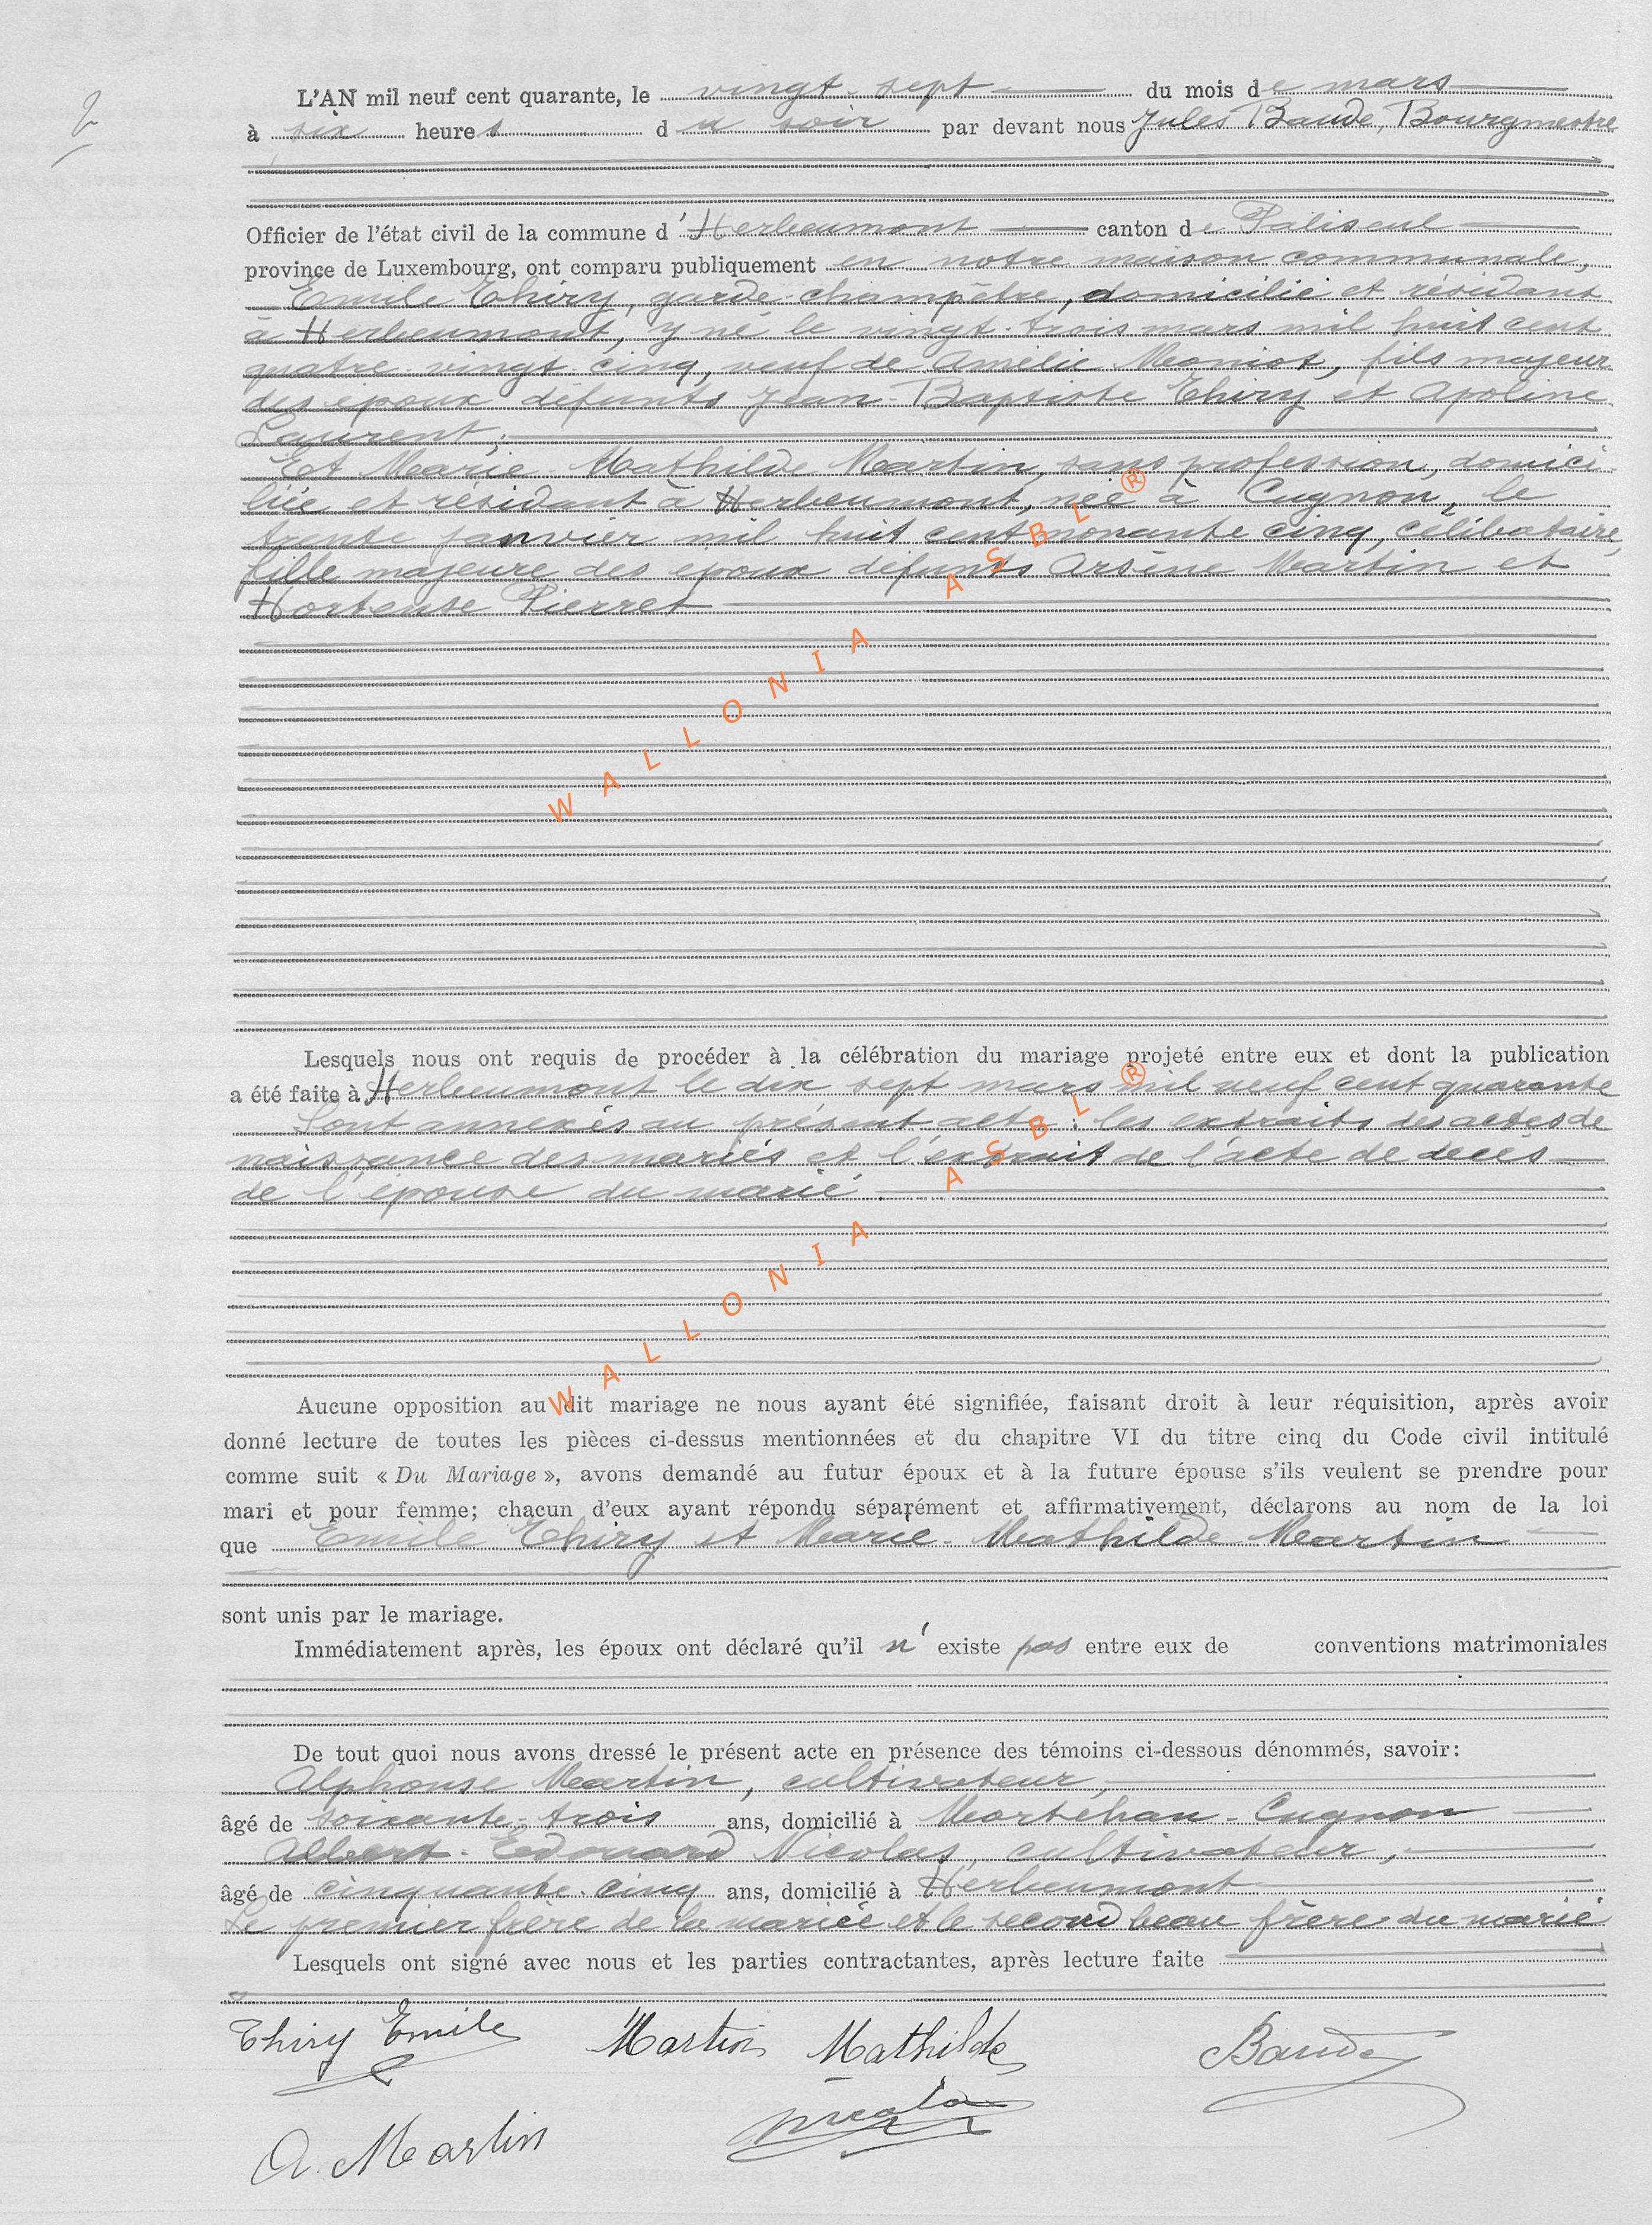 2
L'AN mil neuf cent quarante, le vingt-sept du mois de mars
à six heures du soir par devant nous Jules Baude, Bourgmestre
Officier de l'état civil de la commune d'Herbeumont canton de Paliseul
province de Luxembourg, ont comparu publiquement en notre maison communale,
Emile Thiry, garde-champêtre, domicilié et résidant
à Herbeumont, y né le vingt-trois mars mil huit cent
quatre-vingt-cinq, veuf de Amélie Moniot, fils majeur
des époux défunts Jean-Baptiste Thiry et Apoline
Laurent;
Et Marie-Mathilde Martin, sans profession, domici-
liée et résidant à Herbeumont, née à Cugnon, le
trente janvier mil huit cent nonante cinq, célibataire,
fille majeure des époux défunts Arsène Martin et
Hortense Pierret
WALLONIA ASBL ®
Lesquels nous ont requis de procéder à la célébration du mariage projeté entre eux et dont la publication
a été faite à Herbeumont le dix sept mars mil neuf cent quarante
Sont annexés au présent acte : les extraits des actes de
naissance des mariés et l'extrait de l'acte de décès
de l'épouse du marié.
WALLONIA ASBL ®
Aucune opposition au dit mariage ne nous ayant été signifiée, faisant droit à leur réquisition, après avoir
donné lecture de toutes les pièces ci-dessus mentionnées et du chapitre VI du titre cinq du Code civil intitulé
comme suit « Du Mariage », avons demandé au futur époux et à la future épouse s'ils veulent se prendre pour
mari et pour femme; chacun d'eux ayant répondu séparément et affirmativement, déclarons au nom de la loi
que Emile Thiry et Marie-Mathilde Martin
sont unis par le mariage.
Immédiatement après, les époux ont déclaré qu'il n'existe pas entre eux de conventions matrimoniales
De tout quoi nous avons dressé le présent acte en présence des témoins ci-dessous dénommés, savoir:
Alphonse Martin, cultivateur,
âgé de soixante-trois ans, domicilié à Mortehan-Cugnon
Albert-Edouard Nicolas, cultivateur,
âgé de cinquante-cinq ans, domicilié à Herbeumont
Le premier frère de la mariée et le second beau frère du marié
Lesquels ont signé avec nous et les parties contractantes, après lecture faite
Thiry Emile Martin Mathilde Baude
A. Martin Nicolas